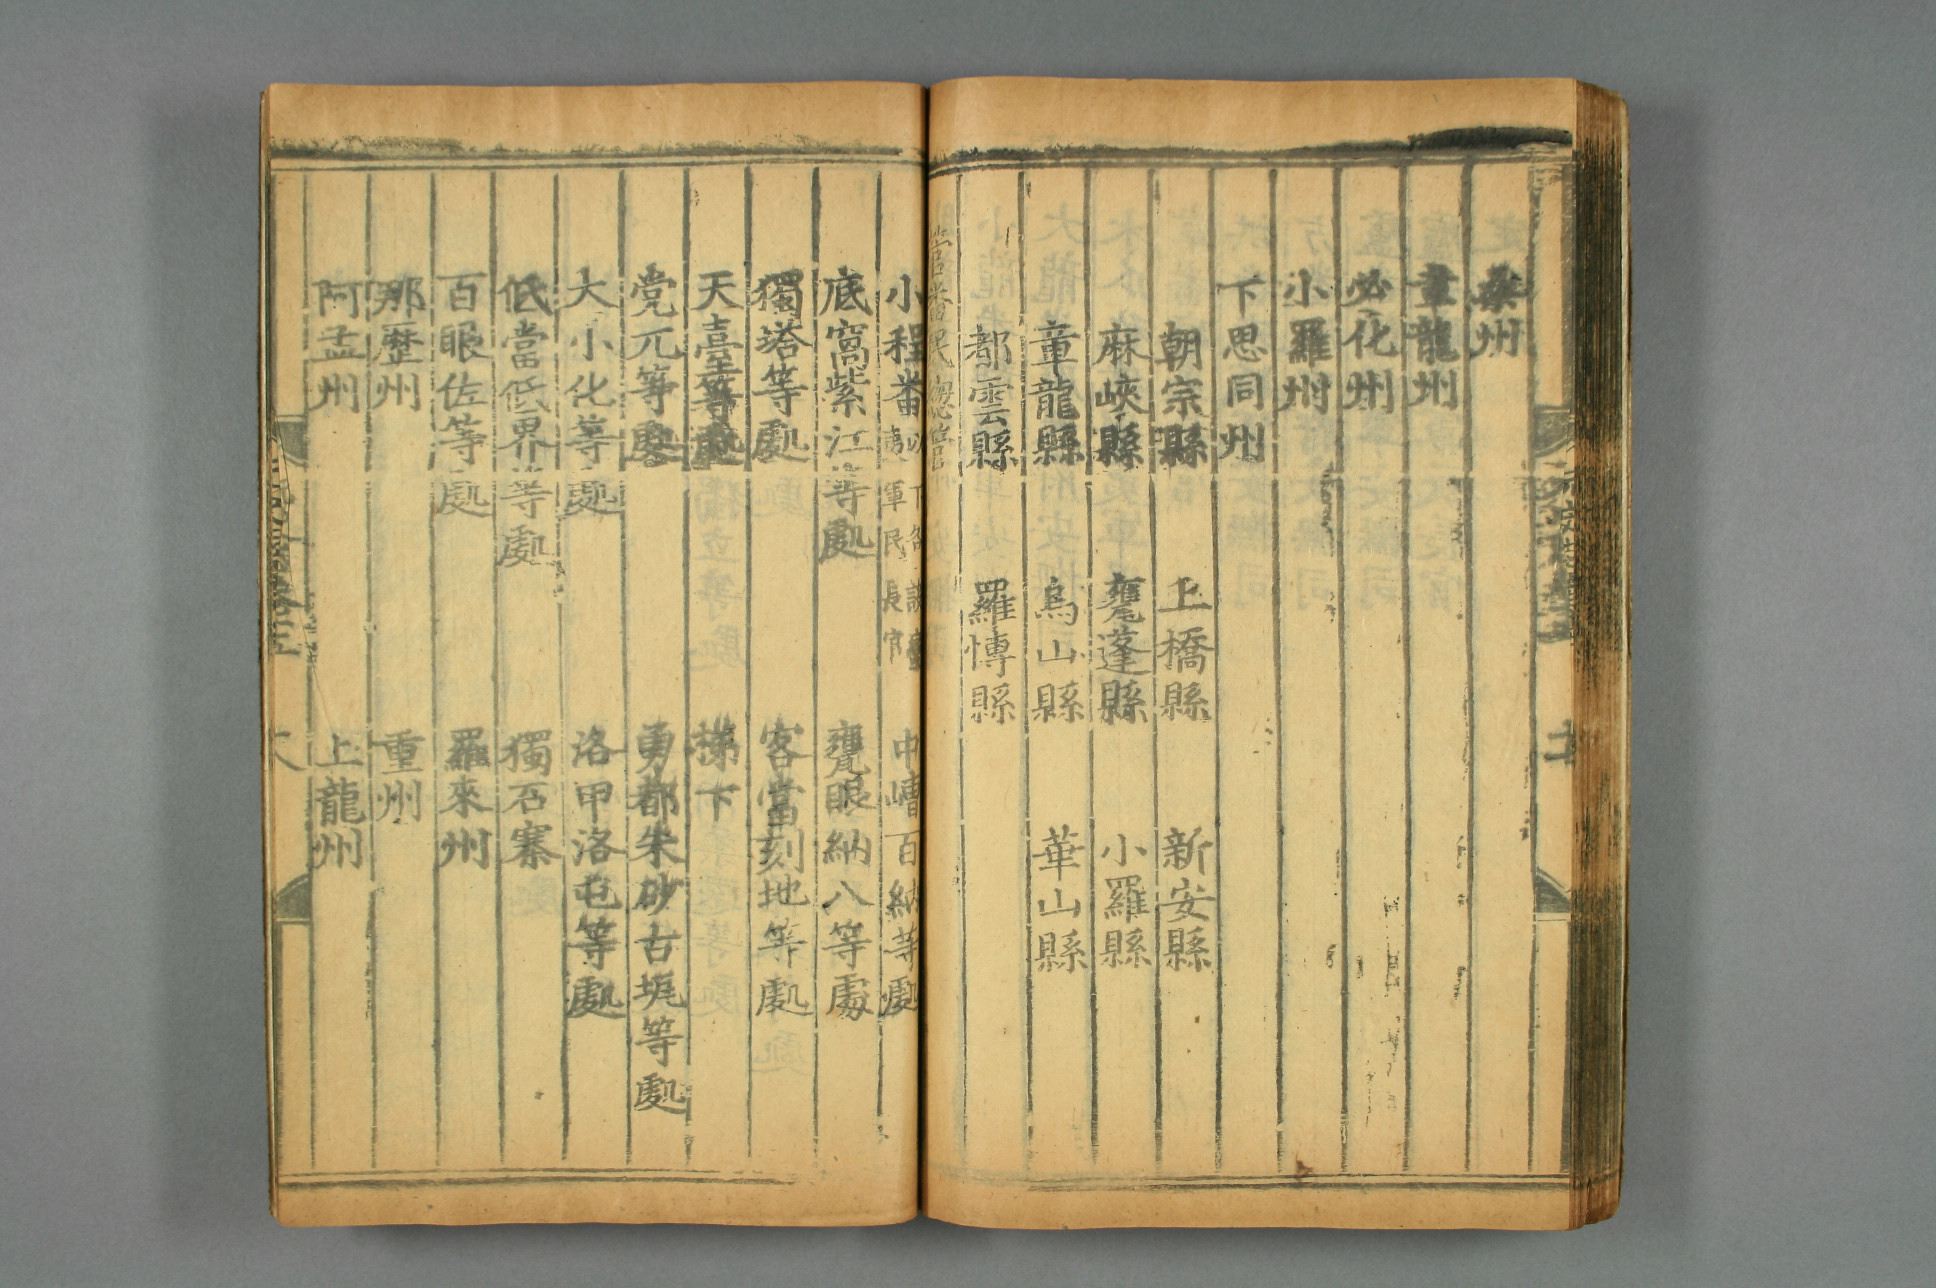 桑州
章龍州
必化州
小羅州
下思同州
朝宗縣 上橋縣 新安縣
麻峽縣 甕蓬縣 小羅縣
章龍縣 烏山縣 華山縣
都雲縣 羅博縣
管番民總管
小程番 以下各設蠻夷軍民長官 中嶆百納等處
底窩紫江等處 甕眼納八等處
獨塔等處 客當刻地等處
天臺等處 梯下
党兀等處 勇都朱砂古垝等處
大小化等處 洛甲洛屯等處
低當低界等處 獨石寨
百眼佐等處 羅來州
那歷州 重州
阿孟州 上龍州